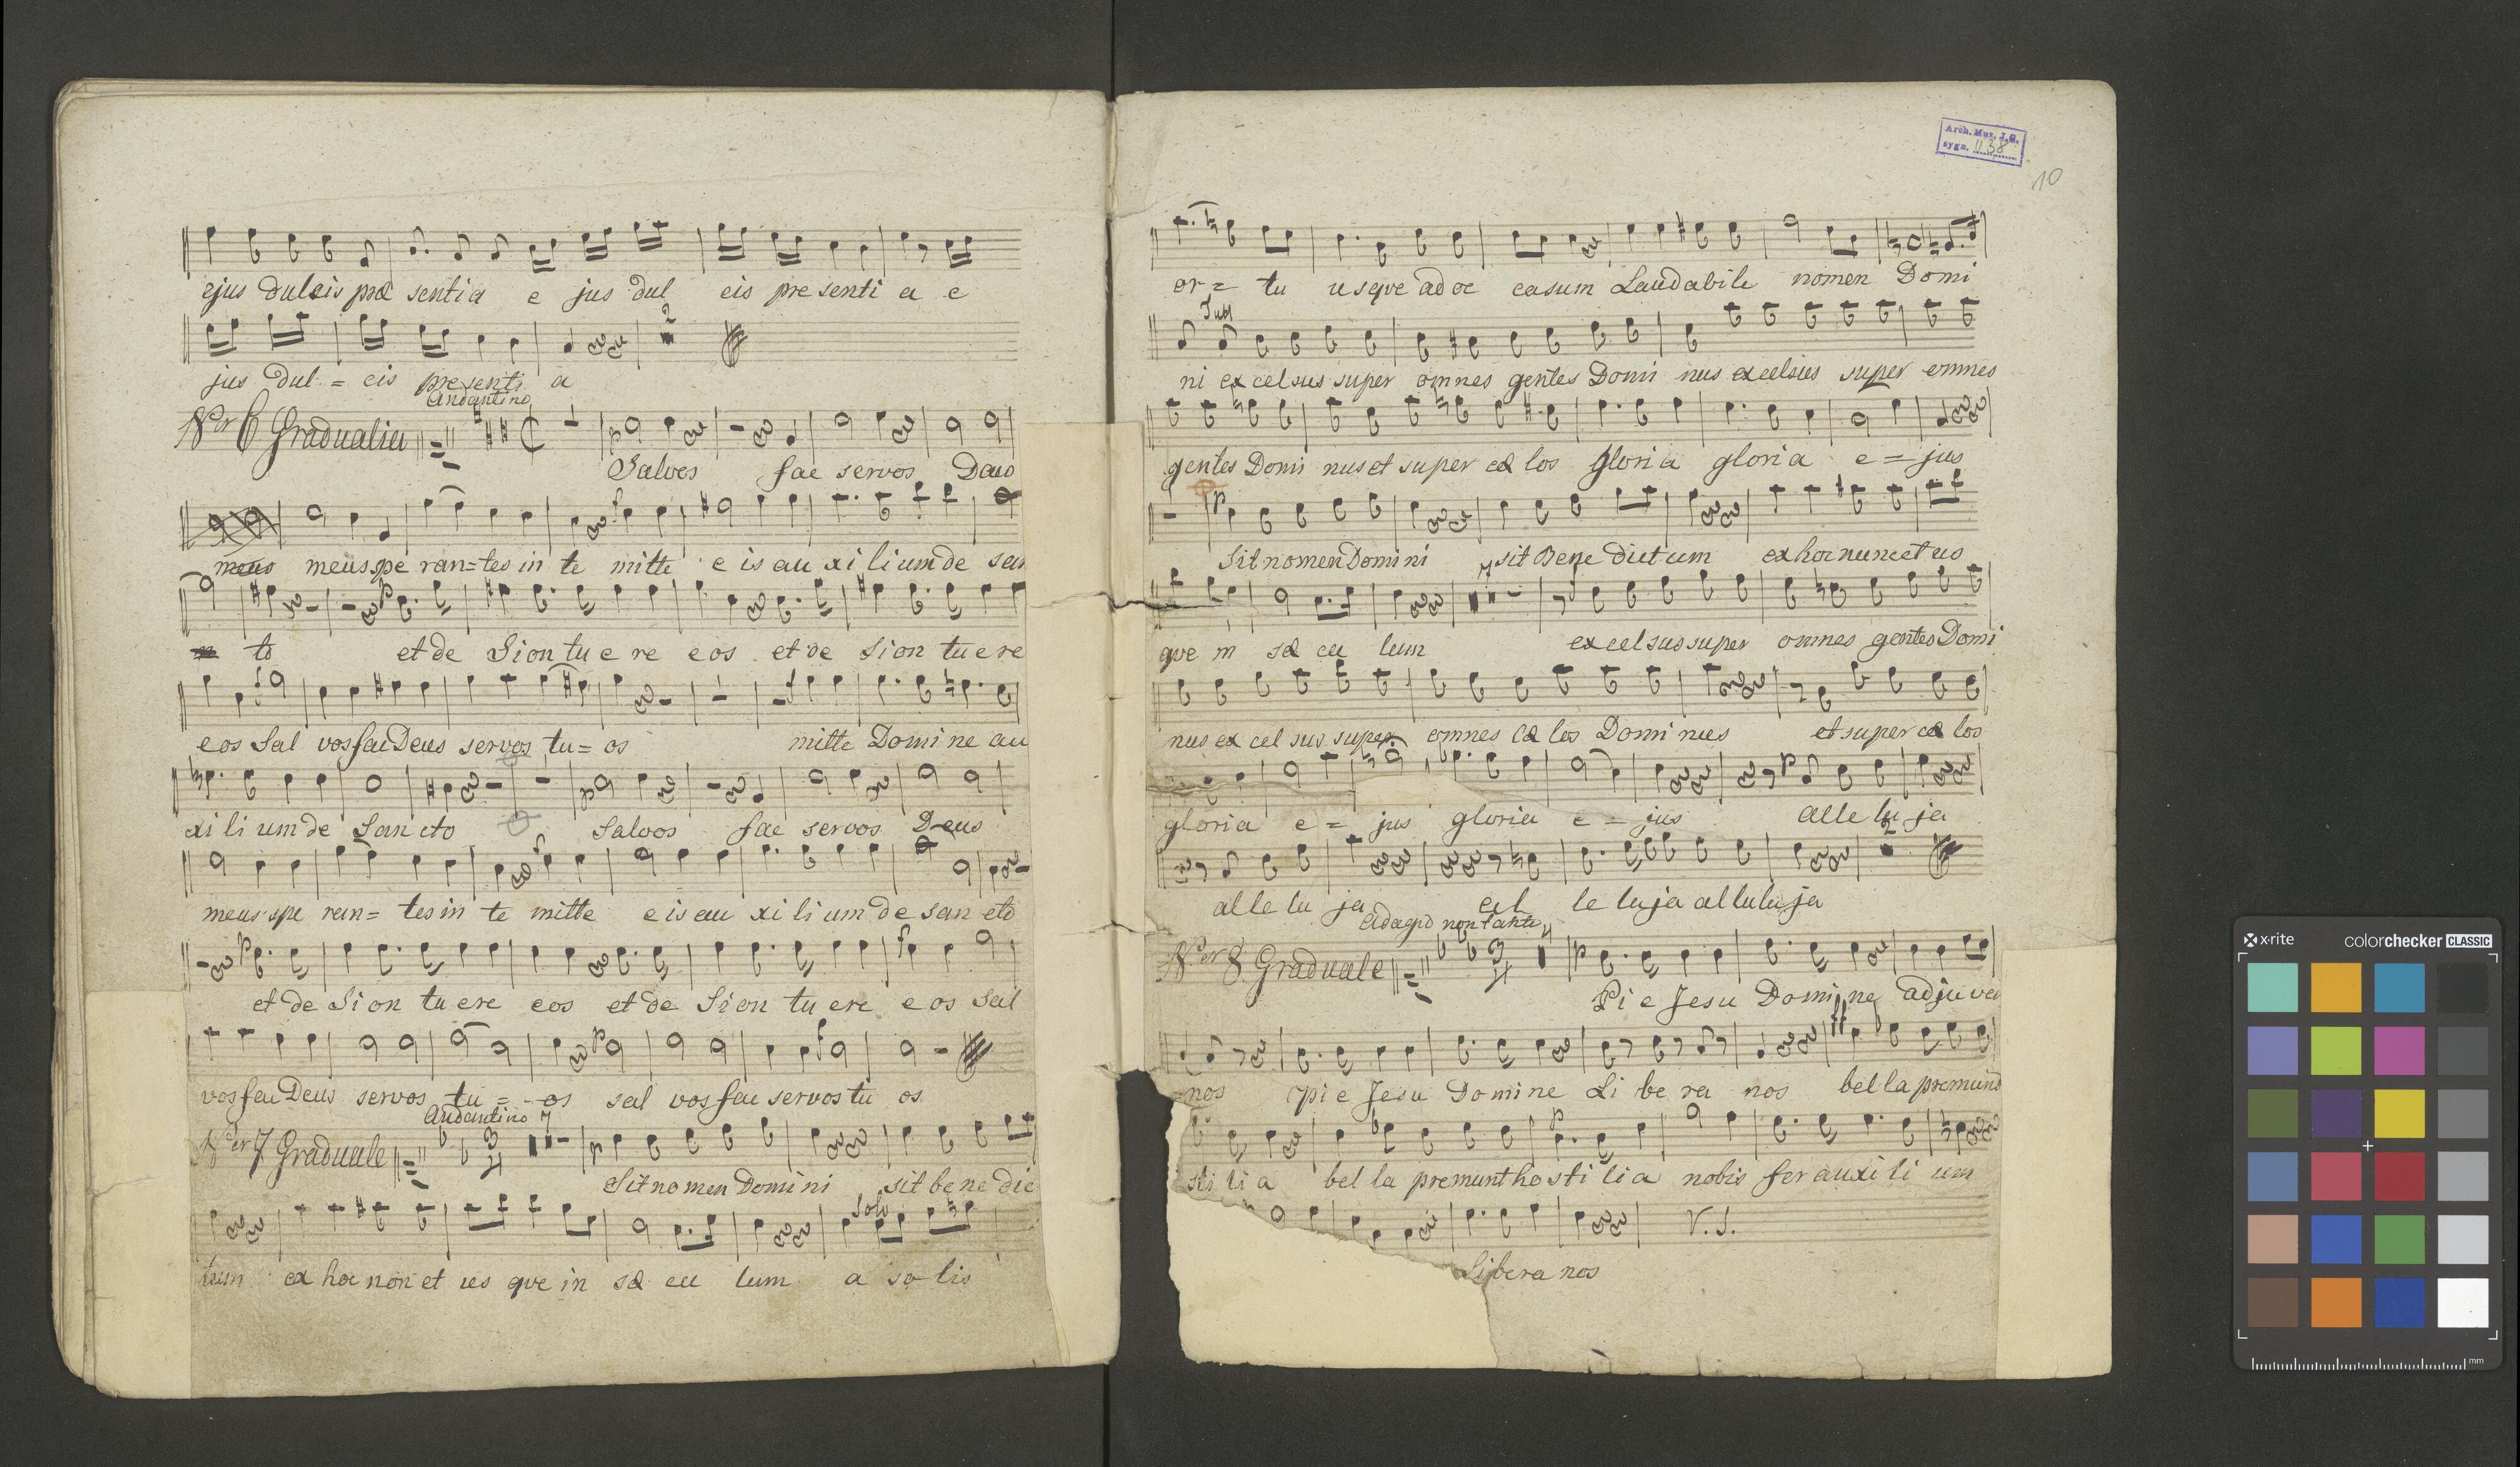 ejus dulcis præ sentia e jus dul cis presenti a e
jus dul = cis presenti a
Andantino
Ner 6 Graduale
Salvos fac servos Deus
meus meus spe ran=tes in te mitte e is au xi li um de san
to et de Sion tu e re e os et de Sion tu e re
e os Sal vos fac Deus servos tu = os mitte Domi ne au
xi li um de San cto Salvos fac servos Deus
meus spe ran= tes in te mitte e is au xi li um de san cto
et de Si on tu ere eos et de Si on tu ere e os sal
vos fac Deus servos tu = os sal vos fac servos tu os
Andantino 7
Ner 7 Graduale 3 4
Sit nomen Domini sit be ne dic
Solo
tum ex hoc non et us qve in sæ cu lum a so lis
Arch. Muz. J.G.
sygn. 1138
10
or = tu usqve ad oc casum Laudabile nomen Domi
Tutti
ni ex celsus super omnes gentes Domi nus excelsus super omnes
gentes Domi nus et super cæ los gloria gloria e = jus
Sit nomen Domini sit Bene dictum ex hoc nunc et us
qve in sæ cu lum ex cel sus super omnes gentes Domi
nus ex cel sus super omnes cæ los Domi nus et super cæ los
gloria e = jus gloria e = jus alle lu ja
2
alle lu ja al le luja al lulu ja
Adagio non tanto
Ner 8 Graduale 3 4
Pi e Jesu Domi ne adjuva
=nos pi e Jesu Domine Li be ra nos bel la premunt
sti li a bel la premunt ho sti li a nobis fer auxi li um
V. S.
Libera nos